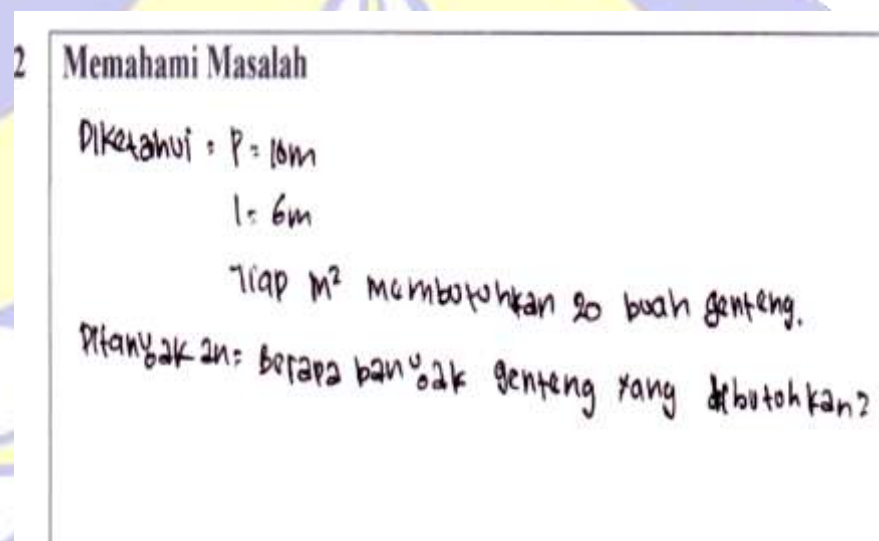 2 Memahami Masalah
Diketahui : P = 10m
l = 6m
Tiap m² membutuhkan 20 buah genteng.
Ditanyakan = Berapa banyak genteng yang dibutuhkan?